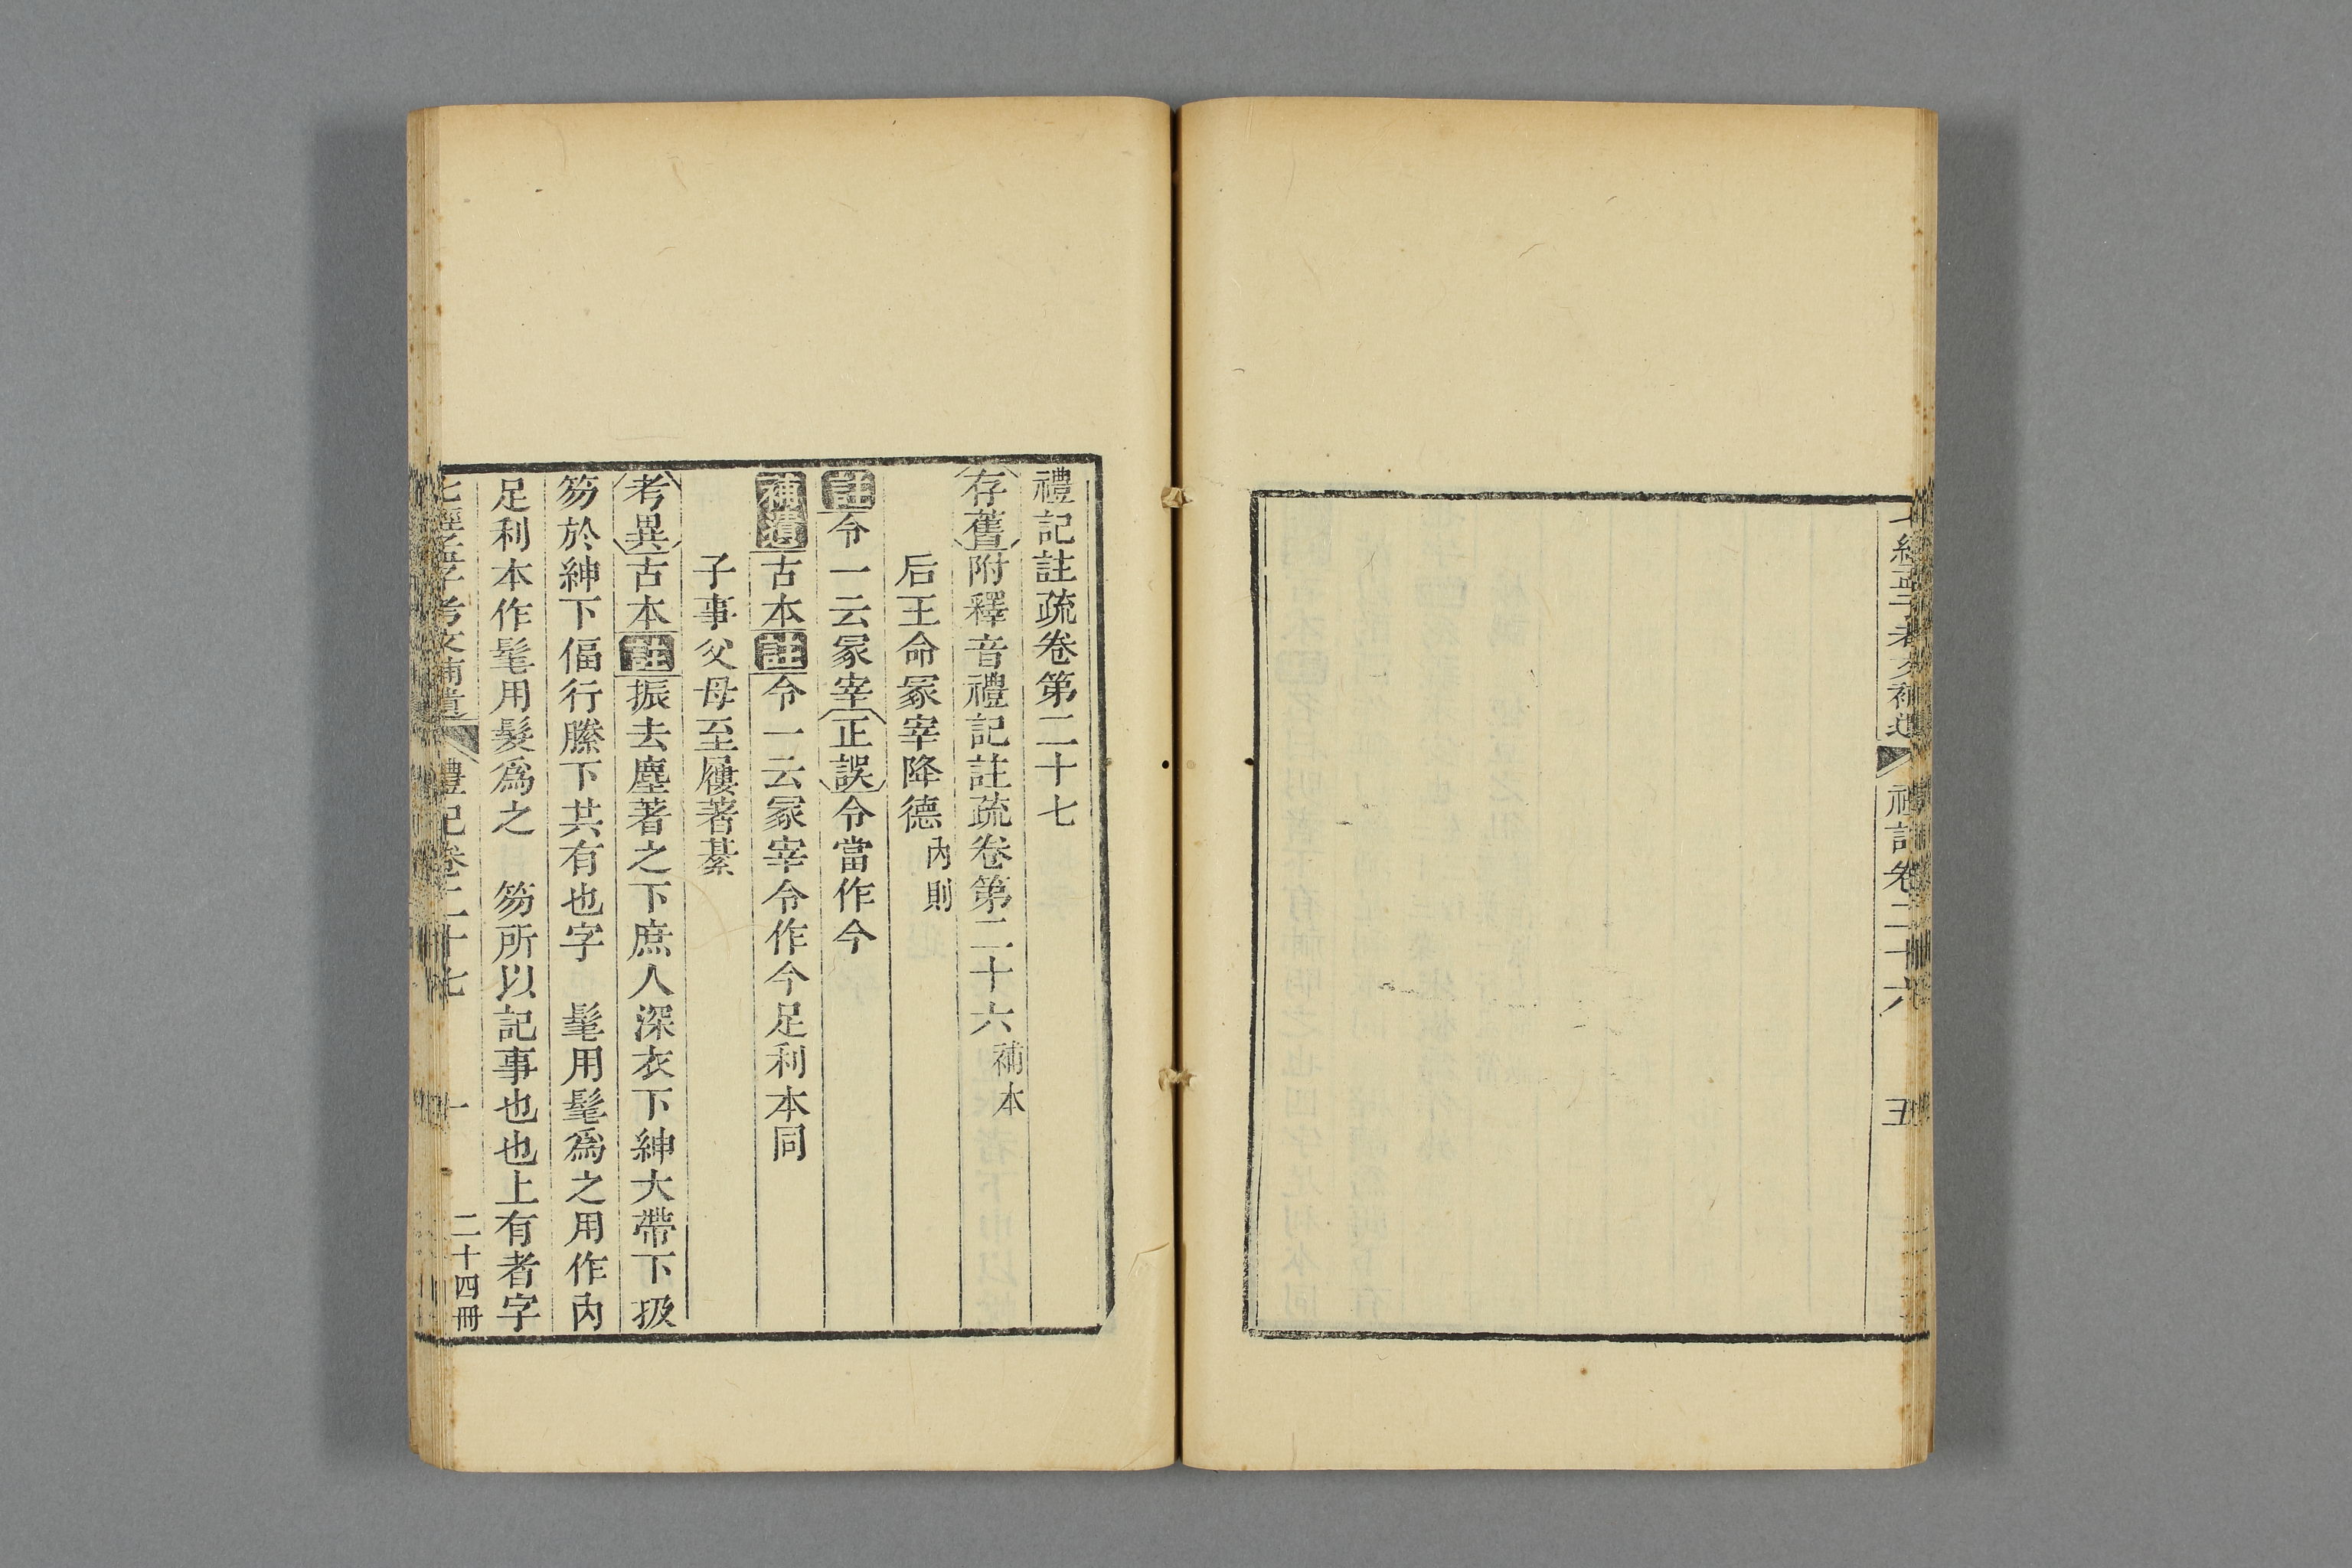 七經孟子考文補遺 禮記卷二十六 五
禮記註疏卷第二十七
存舊附釋音禮記註疏卷第二十六補本
后王命冢宰降德內則
註令一云冢宰正誤令當作今
補遺古本註令一云冢宰令作今足利本同
子事父母至屨著綦
考異古本註振去塵著之下庶人深衣下紳大帶下扱
笏於紳下偪行縢下共有也字 髦用髦爲之用作內
足利本作髦用髮爲之 笏所以記事也也上有者字
七經孟子考文補遺 禮記卷二十七 一 二十四冊